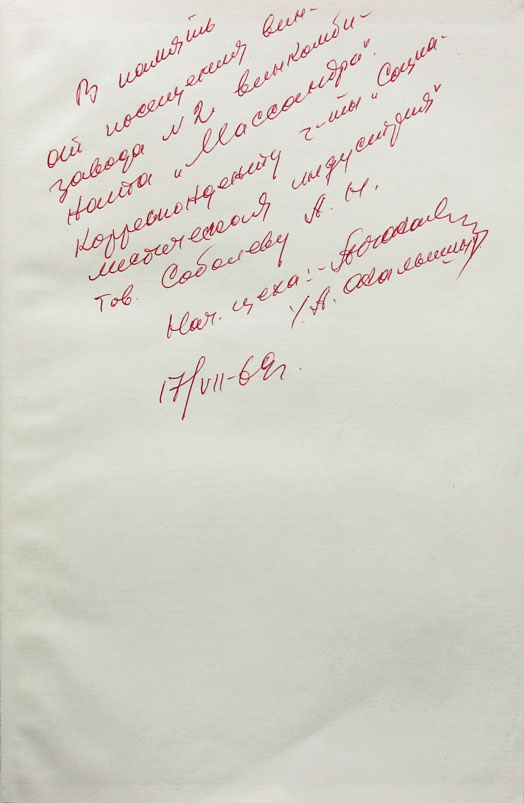 В память
от посещения вин-
завода №2 винкомби-
ната „Массандра".
Корреспонденту г-ты „Социа-
листическая индустрия"
тов. Соболеву А. Н.
Нач. цеха:-
/.А.
17/VII-69г.